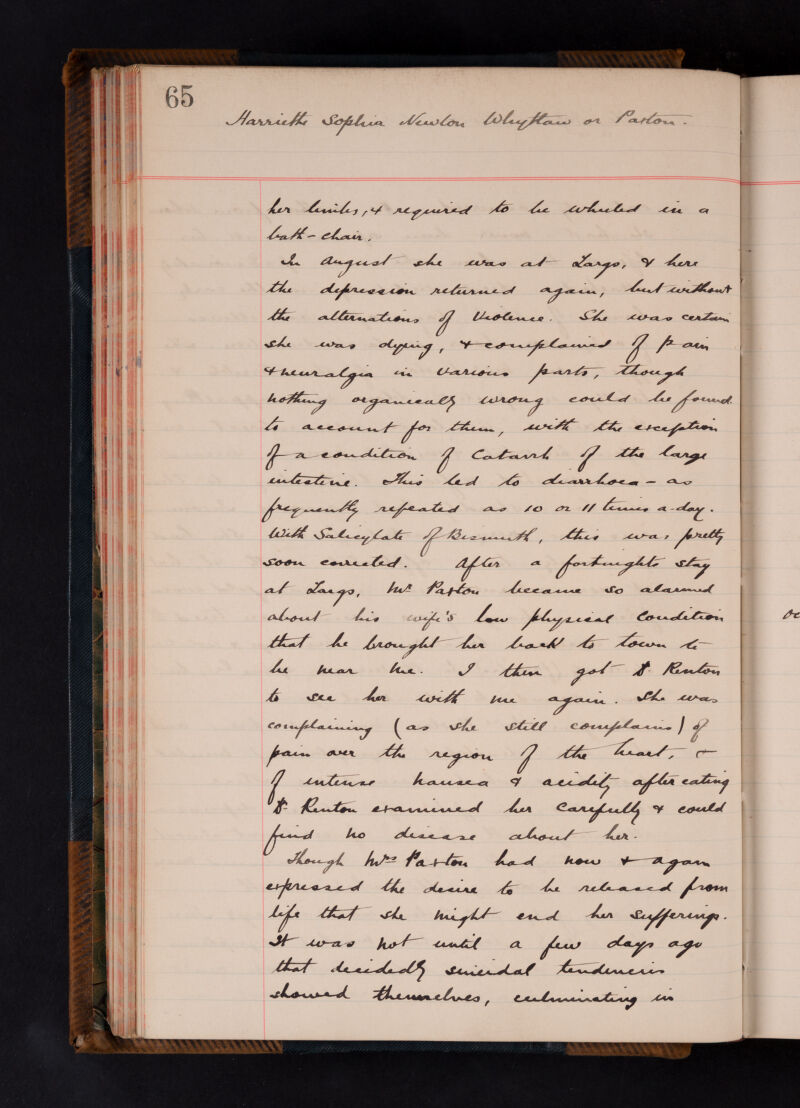 65
Harriette Sophia Newton Whyttaw or Paxton.
her limbs, & required to be wheeled in a
bath-chair.
In August she was at Largs, & here
the depression returned again, but without
the alternations of violence. She was certain
she was dying, & complained of pain
& neuralgia in various parts, though
nothing organically wrong could be found
to account for them, with the exception
of a condition of Catarrh of the large
intestine. This led to diarrhoea - as
frequently repeated as 10 or 11 times a-day.
With Salicylate of Bismuth, this was pretty
soon corrected. After a fortnights stay
at Largs, Mr Paxton became so alarmed
about his wife's low physical condition
that he brought her back to town to
be near me. I then got Dr Renton
to see her with me again. She was
complaining (as she still complains) of
pain over the region of the heart, &
of intense nausea & acidity after eating
Dr Renton examined her carefully & could
find no disease about her.
Though Mrs Paxton had now & again
expressed the desire to be released from
life that she might end her sufferings.
It was not until a few days ago
that decidedly suicidal tendencies
showed themselves, culminating in